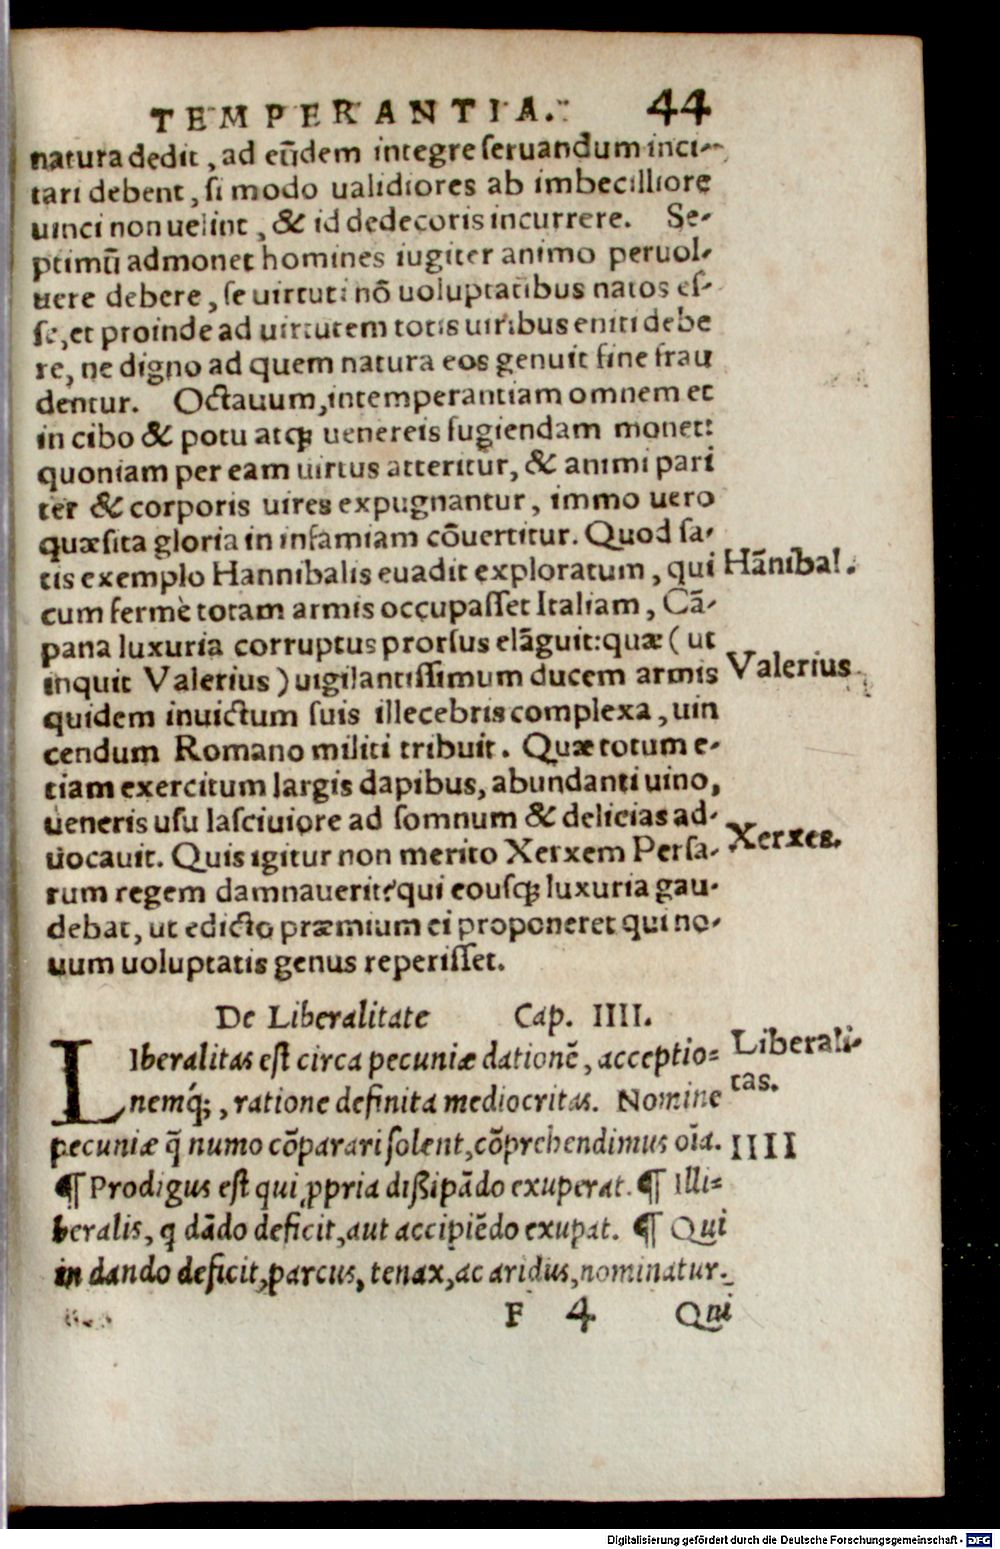 TEMPERANTIA. 44
natura dedit, ad eũdem integre ſeruandum inci-
tari debent, ſi modo ualidiores ab imbecilliore
uinci non uelint, & id dedecoris incurrere. Se-
ptimũ admonet homines iugiter animo peruol-
uere debere, ſe uirtuti nõ uoluptatibus natos eſ-
ſe, et proinde ad uirtutem totis uiribus eniti debe
re, ne digno ad quem natura eos genuit fine frau
dentur. Octauum, intemperantiam omnem et
in cibo & potu atqꝫ uenereis fugiendam monet:
quoniam per eam uirtus atteritur, & animi pari
ter & corporis uires expugnantur, immo uero
quæſita gloria in infamiam cõuertitur. Quod ſa-
tis exemplo Hannibalis euadit exploratum, qui Hãnibal.
cum ferme totam armis occupaſſet Italiam, Cã-
pana luxuria corruptus prorſus elãguit: quæ (ut
inquit Valerius) uigilantiſſimum ducem armis Valerius
quidem inuictum ſuis illecebris complexa, uin
cendum Romano militi tribuit. Quæ totum e-
tiam exercitum largis dapibus, abundanti uino,
ueneris uſu laſciuiore ad ſomnum & delicias ad-
uocauit. Quis igitur non merito Xerxem Perſa- Xerxes.
rum regem damnauerit? qui eouſqꝫ luxuria gau-
debat, ut edicto præmium ei proponeret qui no-
uum uoluptatis genus reperiſſet.
De Liberalitate Cap. IIII.
LIberalitas eſt circa pecuniæ dationẽ, acceptio= Liberali-
nemq́ꝫ, ratione definita mediocritas. Nomine tas.
pecuniæ q̃ numo cõparari ſolent, cõprehendimus oĩa. IIII
¶ Prodigus eſt qui ꝓpria dißipãdo exuperat. ¶ Illi=
beralis, q dãdo deficit, aut accipiẽdo exupat. ¶ Qui
in dando deficit, parcus, tenax, ac aridus, nominatur.
F 4 Qui
Digitalisierung gefördert durch die Deutsche Forschungsgemeinschaft - DFG